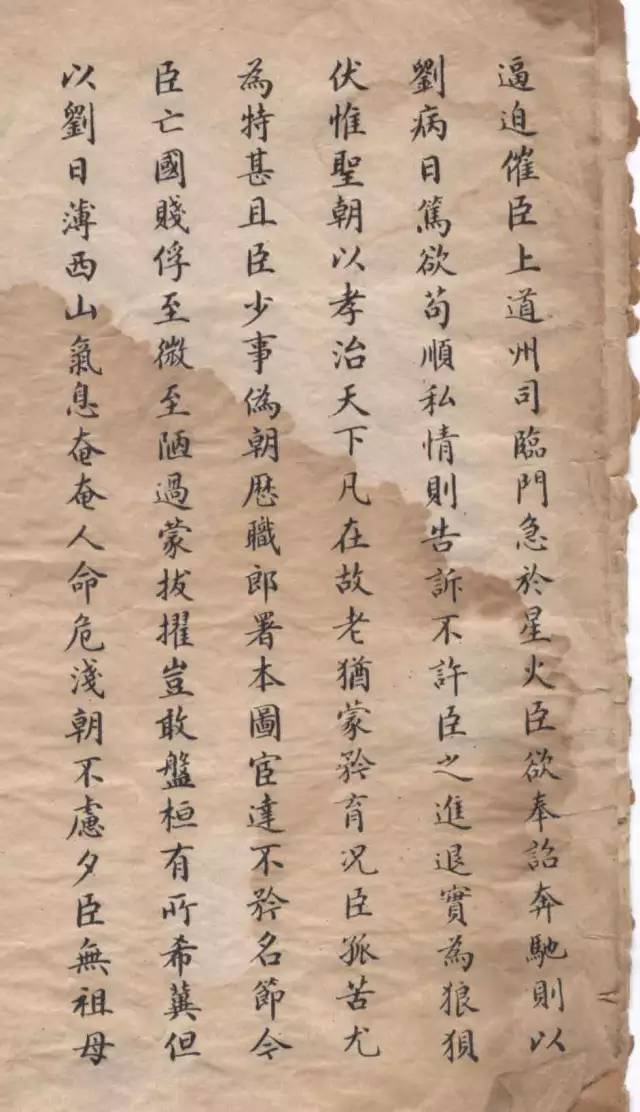 逼迫催臣上道州司臨門急於星火臣欲奉詔奔馳則以
劉病日篤欲苟順私情則告訴不許臣之進退實為狼狽
伏惟聖朝以孝治天下凡在故老猶蒙矜育況臣孤苦尤
為特甚且臣少事偽朝歷職郎署本圖宦達不矜名節今
臣亡國賤俘至微至陋過蒙拔擢豈敢盤桓有所希冀但
以劉日薄西山氣息奄奄人命危淺朝不慮夕臣無祖母